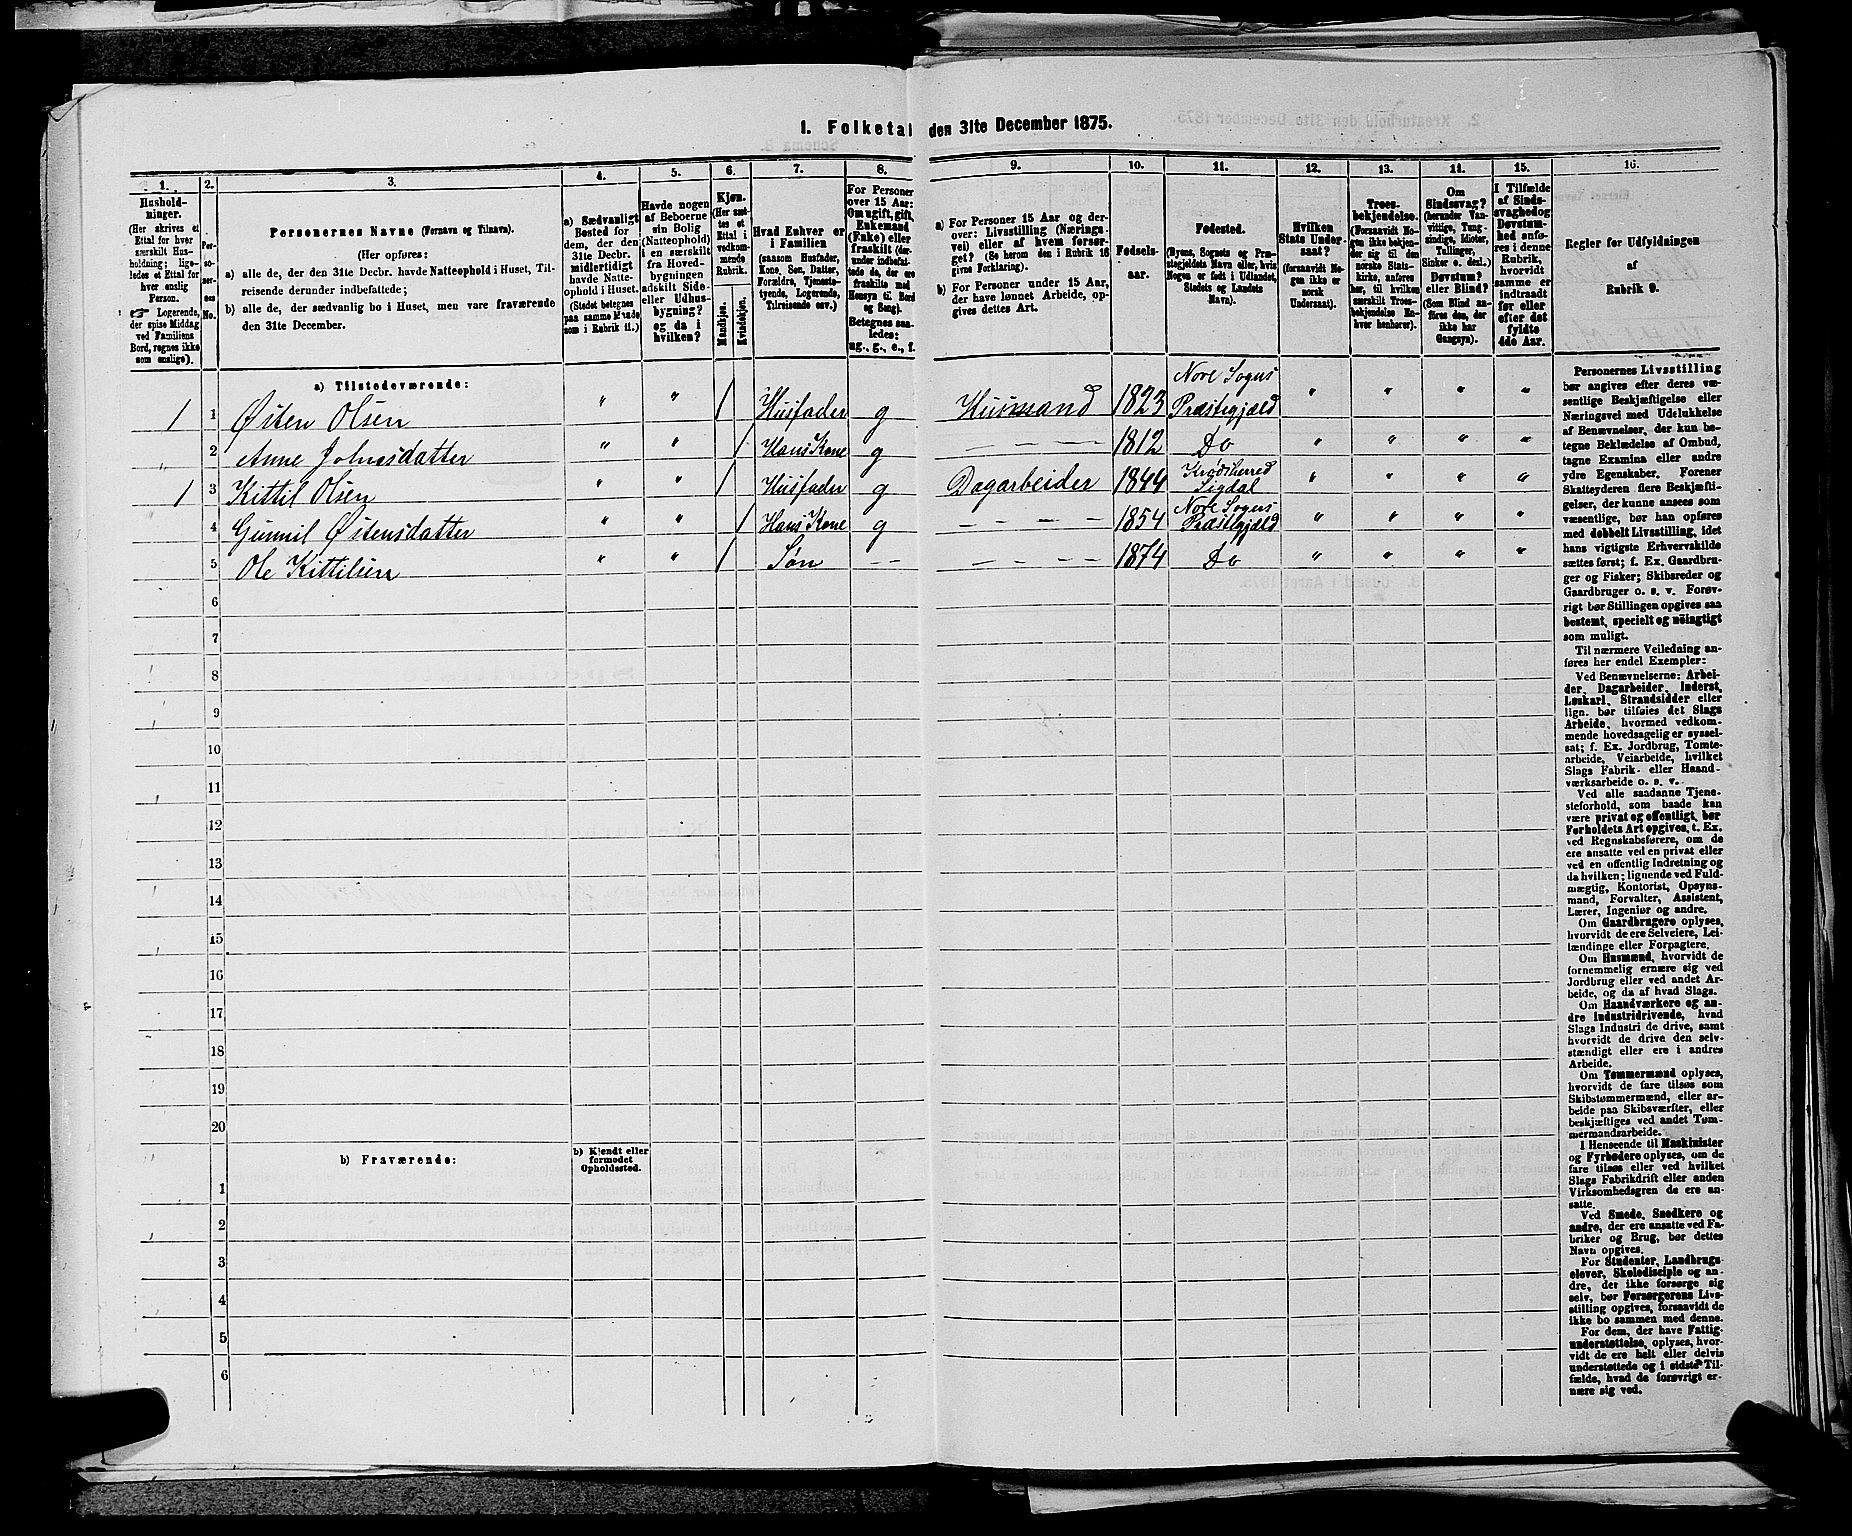 1. Folketal den 31te December 1875.
1. 2. 3. 4. 5. 6. 7. 8. 9. 10. 11. 12. 13. 14. 15. 16.
Hushold-
ninger.
(Her skrives et
Ettal for hver
særskilt Hus-
holdning; lige-
ledes et Ettal for
hver enslig
Person.
☞ Logerende,
der spise Middag
ved Familiens
Bord, regnes ikke
som enslige).
Per-
so-
ner-
nes
No.
Personernes Navne (Fornavn og Tilnavn).
(Her opføres:
a) alle de, der den 31te Decbr. havde Natteophold i Huset, Til-
reisende derunder indbefattede;
b) alle de, der sædvanlig bo i Huset, men vare fraværende
den 31te December.
a) Sædvanligt
Bosted for
dem, der den
31te Decbr.
midlertidigt
havde Natte-
ophold i Huset.
(Stedet betegnes
paa samme Maade
som i Rubrik 11.)
Havde nogen
af Beboerne
sin Bolig
(Natteophold)
i en særskilt
fra Hoved-
bygningen
adskilt Side-
eller Udhus-
bygning?
og da i
hvilken?
Kjøn.
(Her sæt-
tes et
Ettal i
vedkom-
mende
Rubrik.
Mandkjøn.
Kvindekjøn.
Hvad Enhver er
i Familien
(saasom Husfader,
Kone, Søn, Datter,
Forældre, Tjeneste-
tyende, Logerende,
Tilreisende osv.)
For Personer
over 15 Aar:
Om ugift, gift,
Enkemand
(Enke) eller
fraskilt (der-
under indbefat-
tede de, der ere
fraskilte med
Hensyn til Bord
og Seng).
Betegnes saa-
ledes:
ug., g., e., f.
a) For Personer 15 Aar og der-
over: Livsstilling (Nærings-
vei) eller af hvem forsør-
get? (Se herom den i Rubrik 16
givne Forklaring).
b) For Personer under 15 Aar,
der have lønnet Arbeide, op-
gives dettes Art.
Fødsels-
aar.
Fødested.
(Byens, Sognets og Præ-
stegjeldets Navn eller, hvis
Nogen er født i Udlandet,
Stedets og Landets
Navn).
Hvilken
Stats Under-
saat?
(forsaavidt No-
gen ikke er
norsk
Undersaat).
Troes-
bekjendelse.
(Forsaavidt No-
gen ikke bekjen-
der sig til den
norske Stats-
kirke, anføres
her, til hvilken
særskilt Troes-
bekjendelse En-
hver henhører).
Om
Sindssvag?
(herunder Van-
vittige, Tung-
sindige, Idioter,
Tullinger,
Sinker o. desl.)
Døvstum?
eller Blind?
(Som Blind an-
føres den, der
ikke har
Gangsyn).
I Tilfælde
af Sinds-
svaghed og
Døvstum-
hed anfø-
res i denne
Rubrik,
hvorvidt
samme er
indtraadt
før eller
efter det
fyldte
4de Aar.
Regler for Udfyldningen
af
Rubrik 9.
a) Tilstedeværende:
1 1 Østen Olsen " " 1 Husfader g Husmand 1823 Nore Sogns Præstegjæld " " " "
" 2 Anne Johnsdatter " " 1 Hans Kone g — — — 1812 Do " " " "
1 3 Kittil Olsen " " 1 Husfader g Dagarbeider 1844 Krødsherred Sigdal " " " "
4 Gunnil Østensdatter " " 1 Hans Kone g — — — — 1854 Nore Sogns Præstegjæld " " " "
5 Ole Kittilsen " " 1 Søn — — — — — — 1874 Do " " " "
6
7
8
9
10
11
12
13
14
15
16
17
18
19
20
b) Fraværende:
b) Kjendt eller
formodet
Opholdssted.
1
2
3
4
5
6
Personernes Livsstilling
bør angives efter deres væ-
sentlige Beskjæftigelse eller
Næringsvei med Udelukkelse
af Benævnelser, der kun be-
tegne Beklædelse af Ombud,
tagne Examina eller andre
ydre Egenskaber. Forener
Skatteyderen flere Beskjæfti-
gelser, der kunne ansees som
væsentlige, bør han opføres
med dobbelt Livsstilling, idet
hans vigtigste Erhvervskilde
sættes først; f. Ex. Gaardbru-
ger og Fisker; Skibsreder og
Gaardbruger o. s. v. Forøv-
rigt bør Stillingen opgives saa
bestemt, specielt og nöiagtigt
som muligt.
Til nærmere Veiledning an-
føres her endel Exempler:
Ved Benævnelserne: Arbei-
der, Dagarbeider, Inderst,
Løskarl, Strandsidder eller
lign. bør tilføies det Slags
Arbeide, hvormed vedkom-
mende hovedsagelig er syssel-
sat; f. Ex. Jordbrug, Tomte-
arbeide, Veiarbeide, hvilket
Slags Fabrik- eller Haand-
værksarbeide o. s. v.
Ved alle saadanne Tjene-
steforhold, som baade kan
være privat og offentligt, bør
Forholdets Art opgives, t. Ex.
ved Regnskabsførere, om de
ere ansatte ved en privat eller
ved en offentlig Indretning og
da hvilken; lignende ved Fuld-
mægtig, Kontorist, Opsyns-
mand, Forvalter, Assistent,
Lærer, Ingeniør og andre.
Om Gaardbrugere oplyses,
hvorvidt de ere Selveiere, Lei-
lændinge eller Forpagtere.
Om Husmænd, hvorvidt de
fornemmelig ernære sig ved
Jordbrug eller ved andet Ar-
beide, og da af hvad Slags.
Om Haandværkere og an-
dre Industridrivende, hvad
Slags Industri de drive, samt
hvorvidt de drive den selv-
stændigt eller ere i andres
Arbeide.
Om Tømmermænd oplyses,
hvorvidt de fare tilsøs som
Skibstømmermænd, eller ar-
beide paa Skibsværfter, eller
beskjæftiges ved andet Tøm-
mermandsarbeide.
I Henseende til Maskinister
og Fyrbødere oplyses, om de
fare tilsøs eller ved hvilket
Slags Fabrikdrift eller anden
Virksomhedsgren de ere an-
satte.
Ved Smede, Snedkere og
andre, der ere ansatte ved Fa-
briker og Brug, bør dettes
Navn opgives.
For Studenter, Landbrugs-
elever, Skoledisciple og an-
dre, der ikke forsørge sig
selv, bør Forsørgerens Livs-
stilling opgives, forsaavidt de
ikke bo sammen med denne.
For dem, der have Fattig-
understøttelse, oplyses, hvor-
vidt de ere helt eller delvis
understøttede og i sidste Til-
fælde, hvad de forøvrigt er-
nære sig ved.